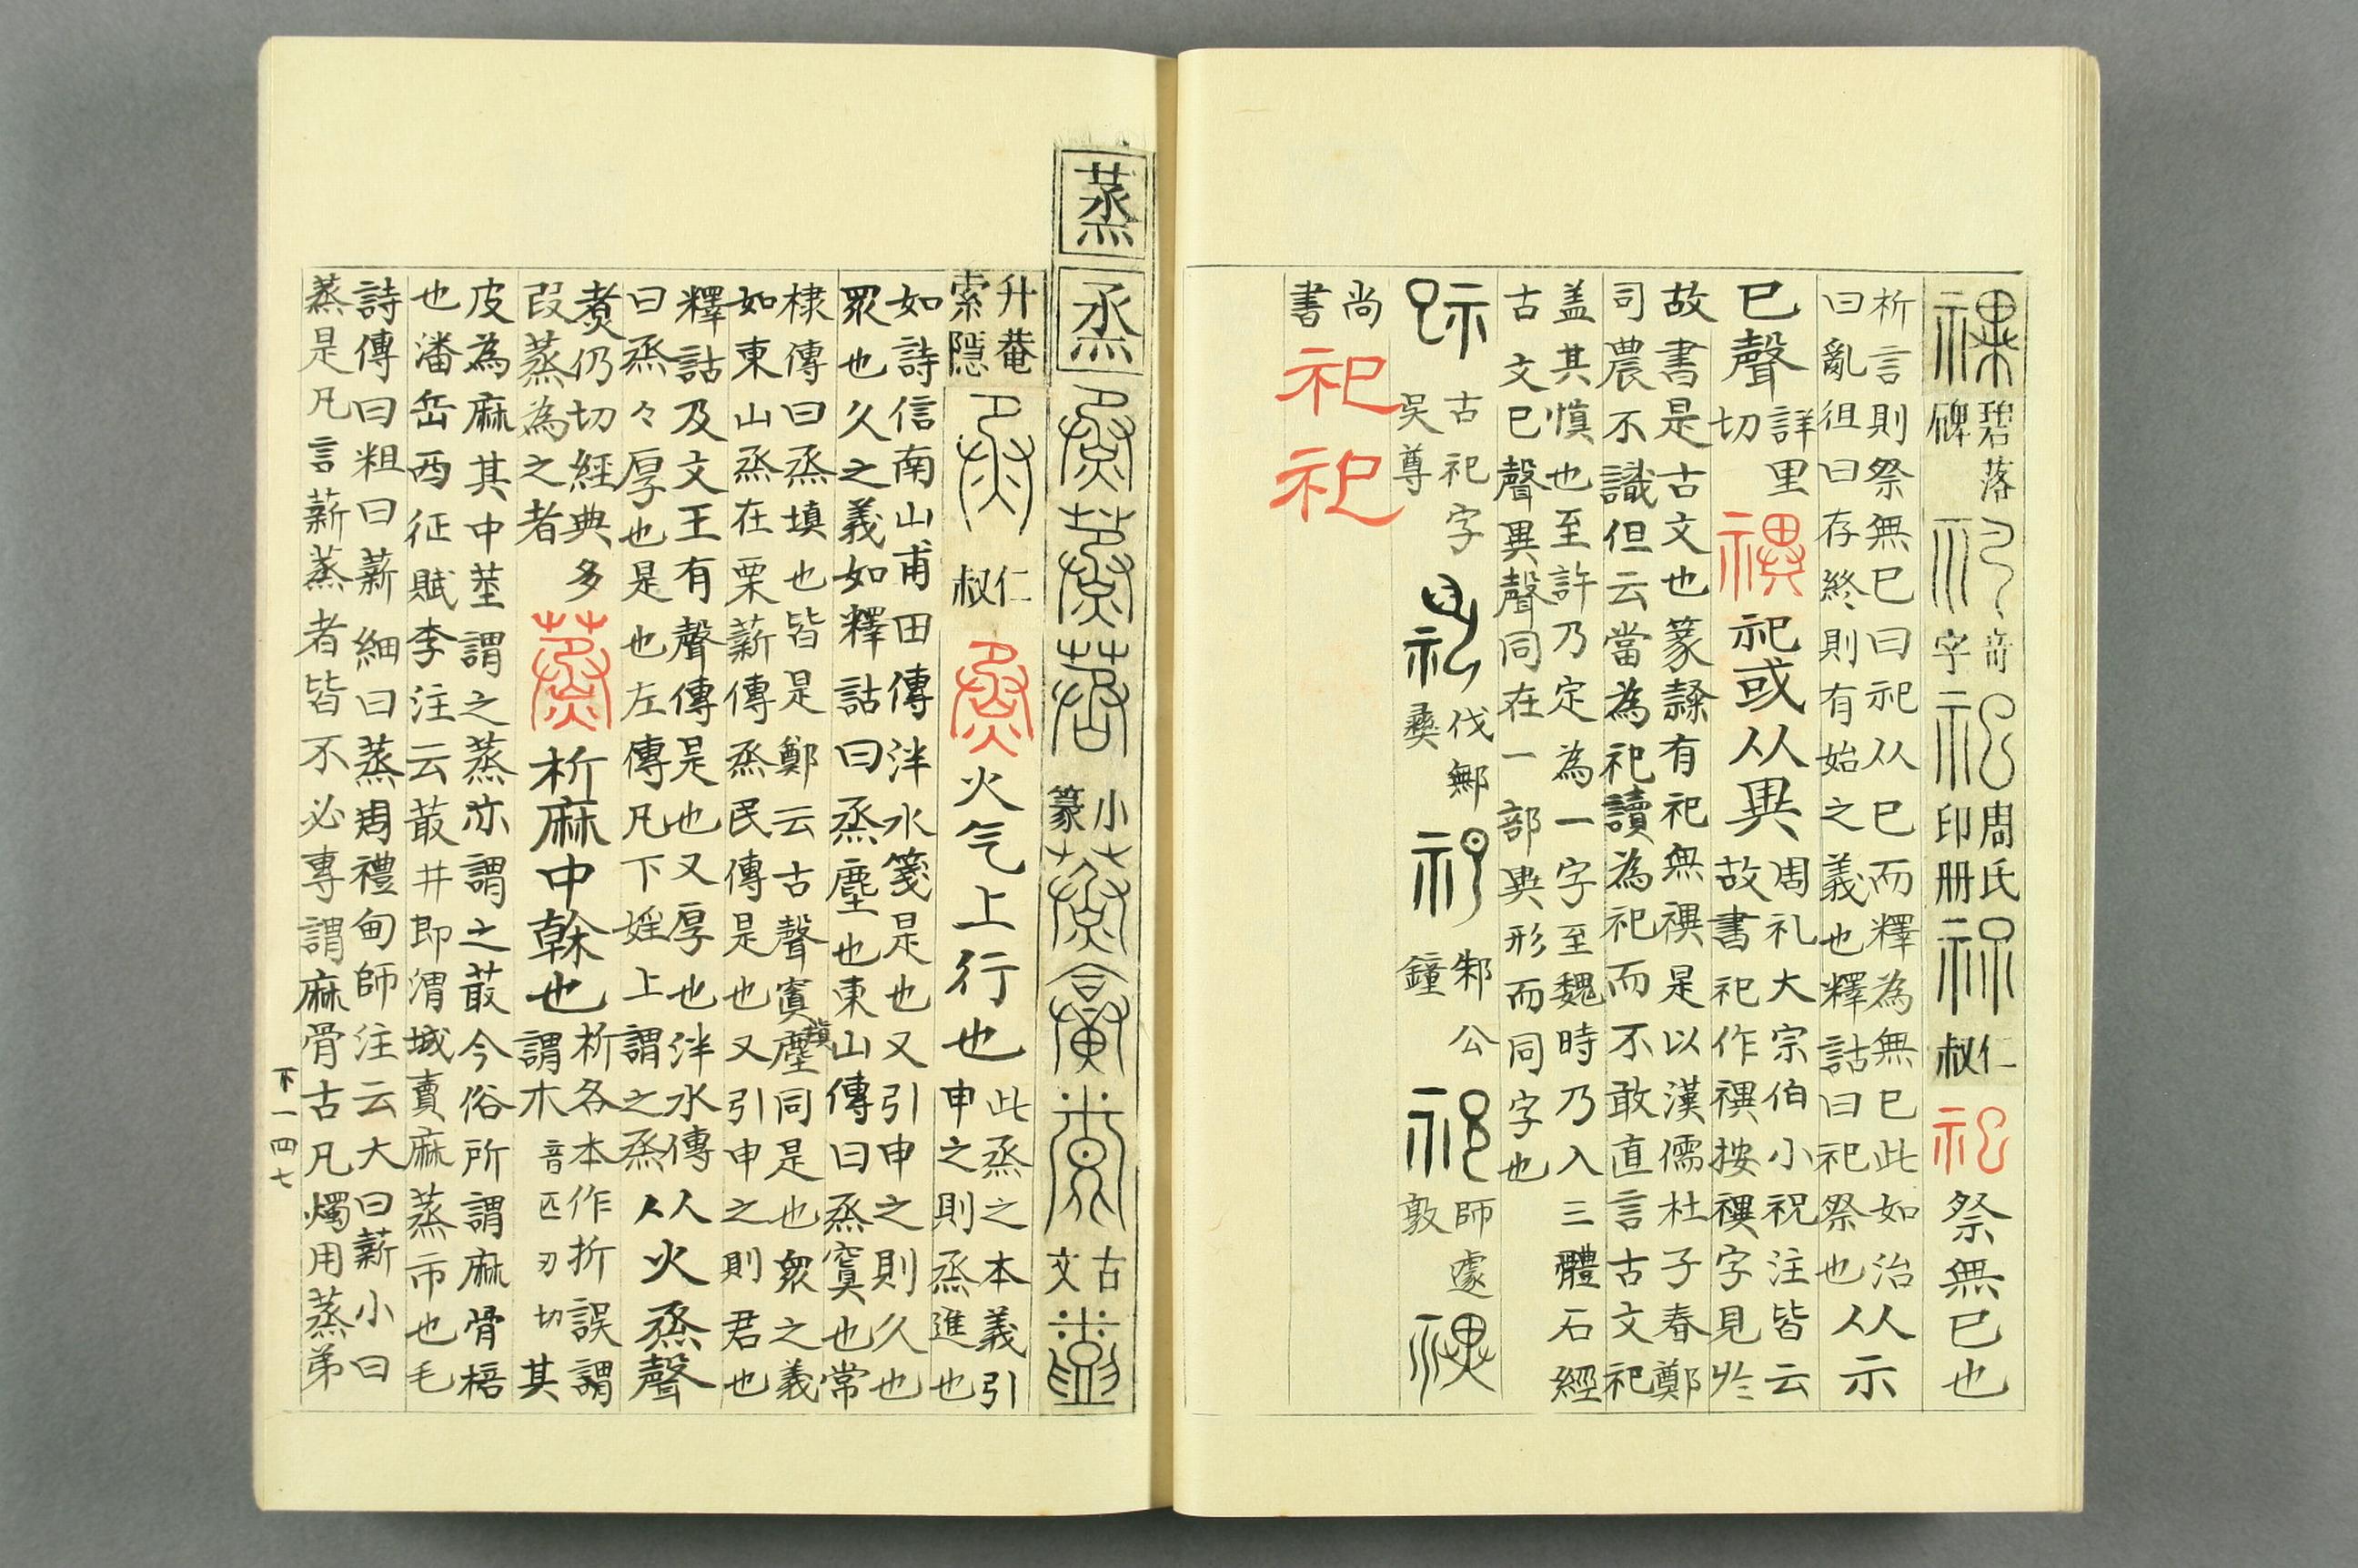 碧落
碑
奇
字
周氏
印冊
仁
叔
祀祭無巳也
析言則祭無巳曰祀从巳而釋為無巳此如治
曰亂徂曰存終則有始之義也釋詁曰祀祭也
从示
巳聲
詳里
切
禩祀或从異
周礼大宗伯小祝注皆云
故書祀作禩按禩字見於
故書是古文也篆隸有祀無禩是以漢儒杜子春鄭
司農不識但云當為祀讀為祀而不敢直言古文祀
盖其慎也至許乃定為一字至魏時乃入三體石經
古文巳聲異聲同在一部異形而同字也
古祀字
吳尊
伐鄦
彝
邾公
鐘
師遽
敦
尚
書
祀祀
蒸烝
小
篆
古
文
升菴
索隱
仁
叔
烝火气上行也
此烝之本義引
申之則烝進也
如詩信南山甫田傳泮水箋是也又引申之則久也
眾也久之義如釋詁曰烝塵也東山傳曰烝窴也常
棣傳曰烝填也皆是鄭云古聲窴填塵同是也眾之義
如東山烝在栗薪傳烝民傳是也又引申之則君也
釋詁及文王有聲傳是也又厚也泮水傳
曰烝々厚也是也左傳凡下婬上謂之烝
从火烝聲
煑仍切經典多
叚蒸為之者
蒸析麻中榦也
析各本作折誤謂
謂木音匹刃切其
皮為麻其中莖謂之蒸亦謂之菆今俗所謂麻骨棓
也潘岳西征賦李注云菆井即渭城賣麻蒸市也毛
詩傳曰粗曰薪細曰蒸周禮甸師注云大曰薪小曰
蒸是凡言薪蒸者皆不必專謂麻骨古凡燭用蒸弟
下一四七